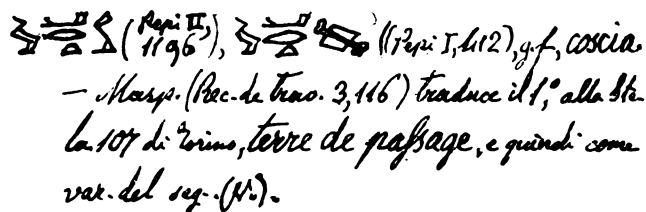 (Pepi II, 1196), (Pepi I, 412), g.f., coscia
— Masp. (Rec. de trav. 3, 116) traduce il 1,° alla Ste-
la 107 di Torino, terre de passage, e quindi come
var. del seg. (N.).